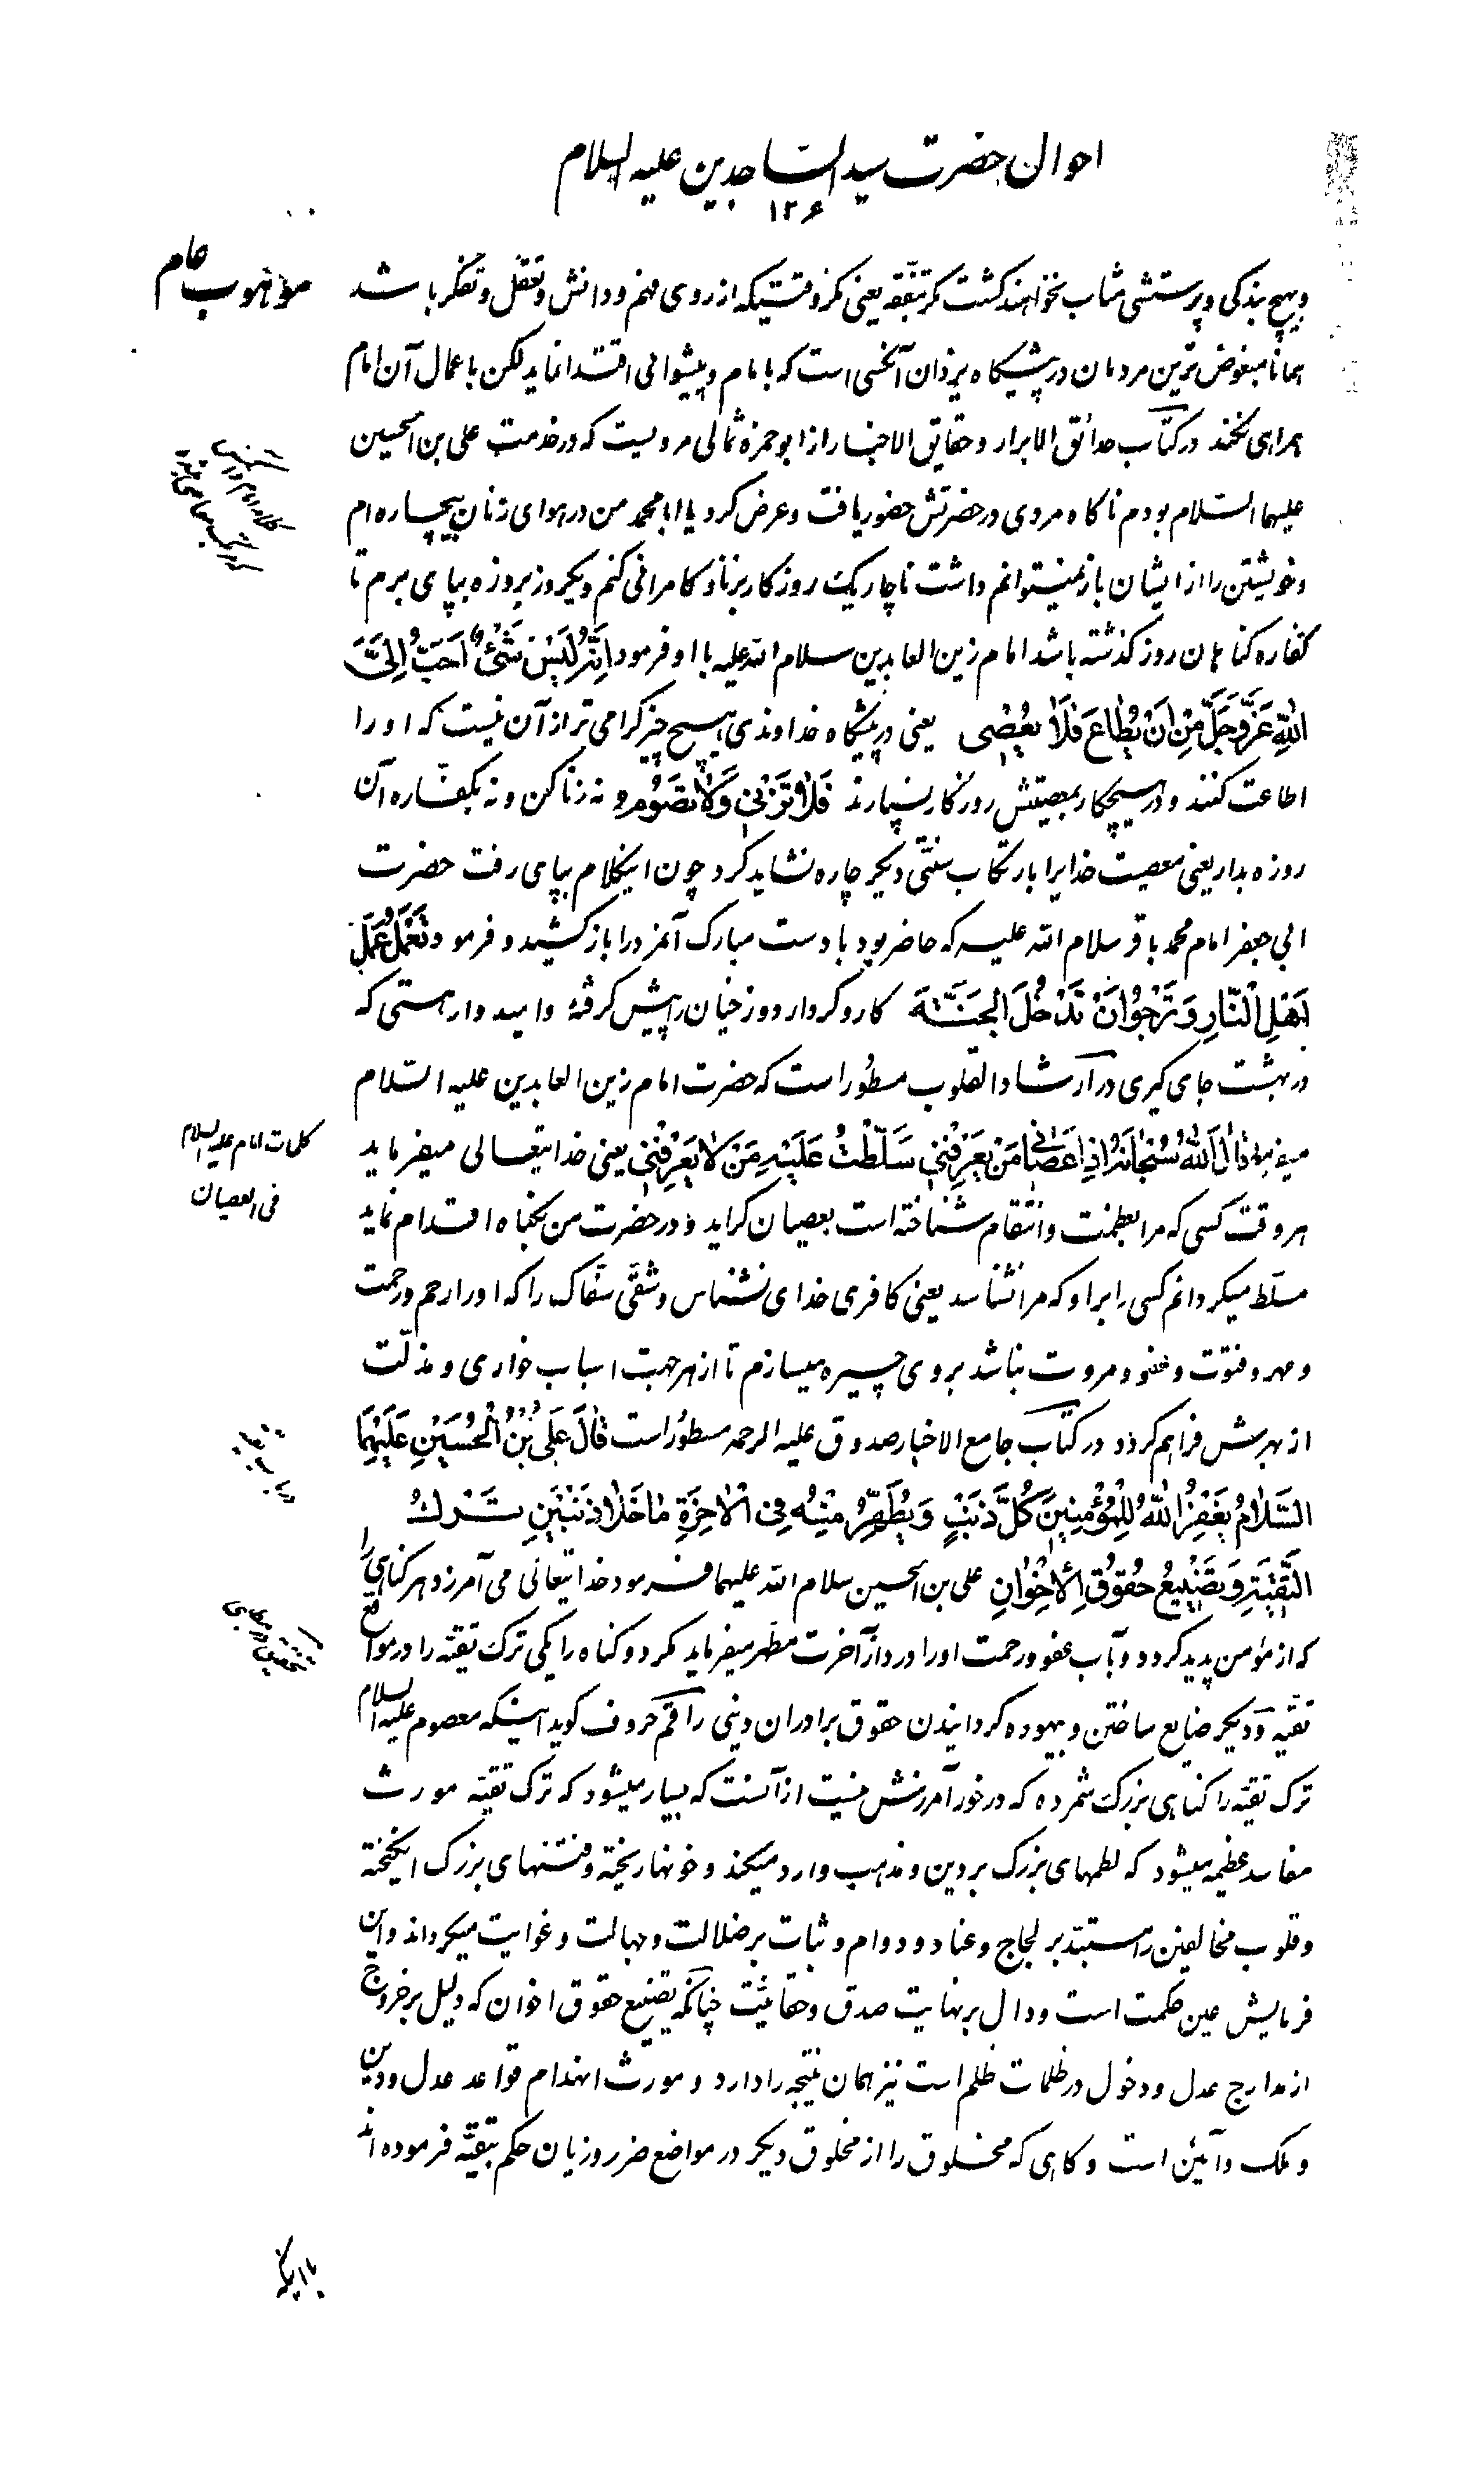 احوال حضرت سید الساجدین علیه السلام
۱۲۶
وبهیچ بندکی و پرستشی مثاب نخواهند کشت مکر بتفقه یعنی مکر وقتیکه از روی فهم و دانش و تعقل و تفکر باشد
همانا مبغوض ترین مردمان در پیشکاه یزدان آنکسی است که بامام و پیشوائی اقتدا نماید لکن باعمال آن امام
همراهی نکند در کتاب حدائق الابرار و حقایق الاخبار از ابو حمزه ثمالی مرویست که در خدمت علی بن الحسین
علیهما السلام بودم ناکاه مردی در حضرتش حضور یافت و عرض کرد یا ابا محمد من در هوای زنان بیچاره ام
و خویشتن را از ایشان باز نمیتوانم داشت ناچار یک روز کار بزنا و کامرانی کنم و دیکر روز بروزه بپای برم تا
کفاره کناهان روز کذشته باشد امام زین العابدین سلام الله علیه با او فرمود اِنَّهُ لَیْسَ شَیْءٌ اَحَبَّ اِلیَ
اللهِ عَزَّوَجَلَّ مِنْ اَنْ یُطاعَ فَلاٰ یُعْصٰی یعنی در پیشکاه خداوندی هیچ چیز کرامی تر از آن نیست که او را
اطاعت کنند و در هیچکار بمعصیتش روزکار نسپارند فَلاٰ تَزْنی وَلاٰ تَصُومُ نه زنا کن و نه بکفاره آن
روزه بدار یعنی معصیت خدایرا بارتکاب سنتی دیکر چاره نشاید کرد چون اینکلام بپای رفت حضرت
ابی جعفر امام محمد باقر سلام الله علیه که حاضر بود با دست مبارک آنمرد را باز کشید و فرمود تَعْمَلُ عَمَلَ
اَهْلِ النّارِ وَتَرْجُوا اَنْ تَدْخُلَ الْجَنَّةَ کار و کردار دوزخیان را پیش کرفتۀ و امیدوار هستی که
در بهشت جای کیری در ارشاد القلوب مسطور است که حضرت امام زین العابدین علیه السلام
میفرماید قٰالَ اللهُ سُبْحٰانَهُ اِذٰا عَصٰانی مَنْ یَعْرِفُنی سَلَّطْتُ عَلَیْهِ مَنْ لاٰ یَعْرِفُنی یعنی خدایتعالی میفرماید
هر وقت کسی که مرا بعظمت و انتقام شناخته است بعصیان کراید و در حضرت من بکناه اقدام نماید
مسلط میکردانم کسی را بر او که مرا نشناسد یعنی کافری خدای نشناس و شقی سفاک را که او را رحم و رحمت
و مهر و فتوت و عفو و مروت نباشد بروی چیره میسازم تا از هر جهت اسباب خواری و مذلت
از بهرش فراهم کردد در کتاب جامع الاخبار صدوق علیه الرحمه مسطور است قٰالَ عَلیُّ بْنُ الْحُسَیْنِ عَلَیْهِمَا
السَّلاٰمُ یَغْفِرُ اللهُ لِلْمُؤْمِنِینَ کُلَّ ذَنْبٍ وَیُطَهِّرُ مِنْهُ فی الْاٰخِرَةِ مٰا خَلاٰ ذَنْبَیْنِ تَرْكُ
التَّقِیَّةِ وَتَضْییعُ حُقُوقِ الْاِخْوٰانِ علی بن الحسین سلام الله علیهما فرمود خدایتعالی می آمرزد هر کناهی را
که از مؤمن پدید کردد و بآب عفو و رحمت او را در دار آخرت مطهر میفرماید مکر دو کناه را یکی ترک تقیه را در مواقع
تقیه و دیکر ضایع ساختن و بیهوده کردانیدن حقوق برادران دینی راقم حروف کوید اینکه معصوم علیه السلام
ترک تقیه را کناهی بزرک شمرده که در خور آمرزش نیست از آنست که بسیار میشود که ترک تقیه مورث
مفاسد عظیمه میشود که لطمهای بزرک بر دین و مذهب وارد میکند و خونها ریخته و فتنهای بزرک انکیخته
و قلوب مخالفین را مستبد بر لجاج و عناد و دوام و ثبات بر ضلالت و جهالت و غوایت میکرداند و این
فرمایش عین حکمت است و دال بر نهایت صدق و حقانیت چنانکه تضییع حقوق اخوان که دلیل بر خروج
از مدارج عدل و دخول در ظلمات ظلم است نیز همان نتیجه را دارد و مورث انهدام قواعد عدل و دین
و ملک و آئین است و کاهی که مخلوق را از مخلوق دیکر در مواضع ضرر و زیان حکم بتقیه فرموده اند
موهوب عام
کلمات امام علیه السلام
فی العصیان
با اینکه